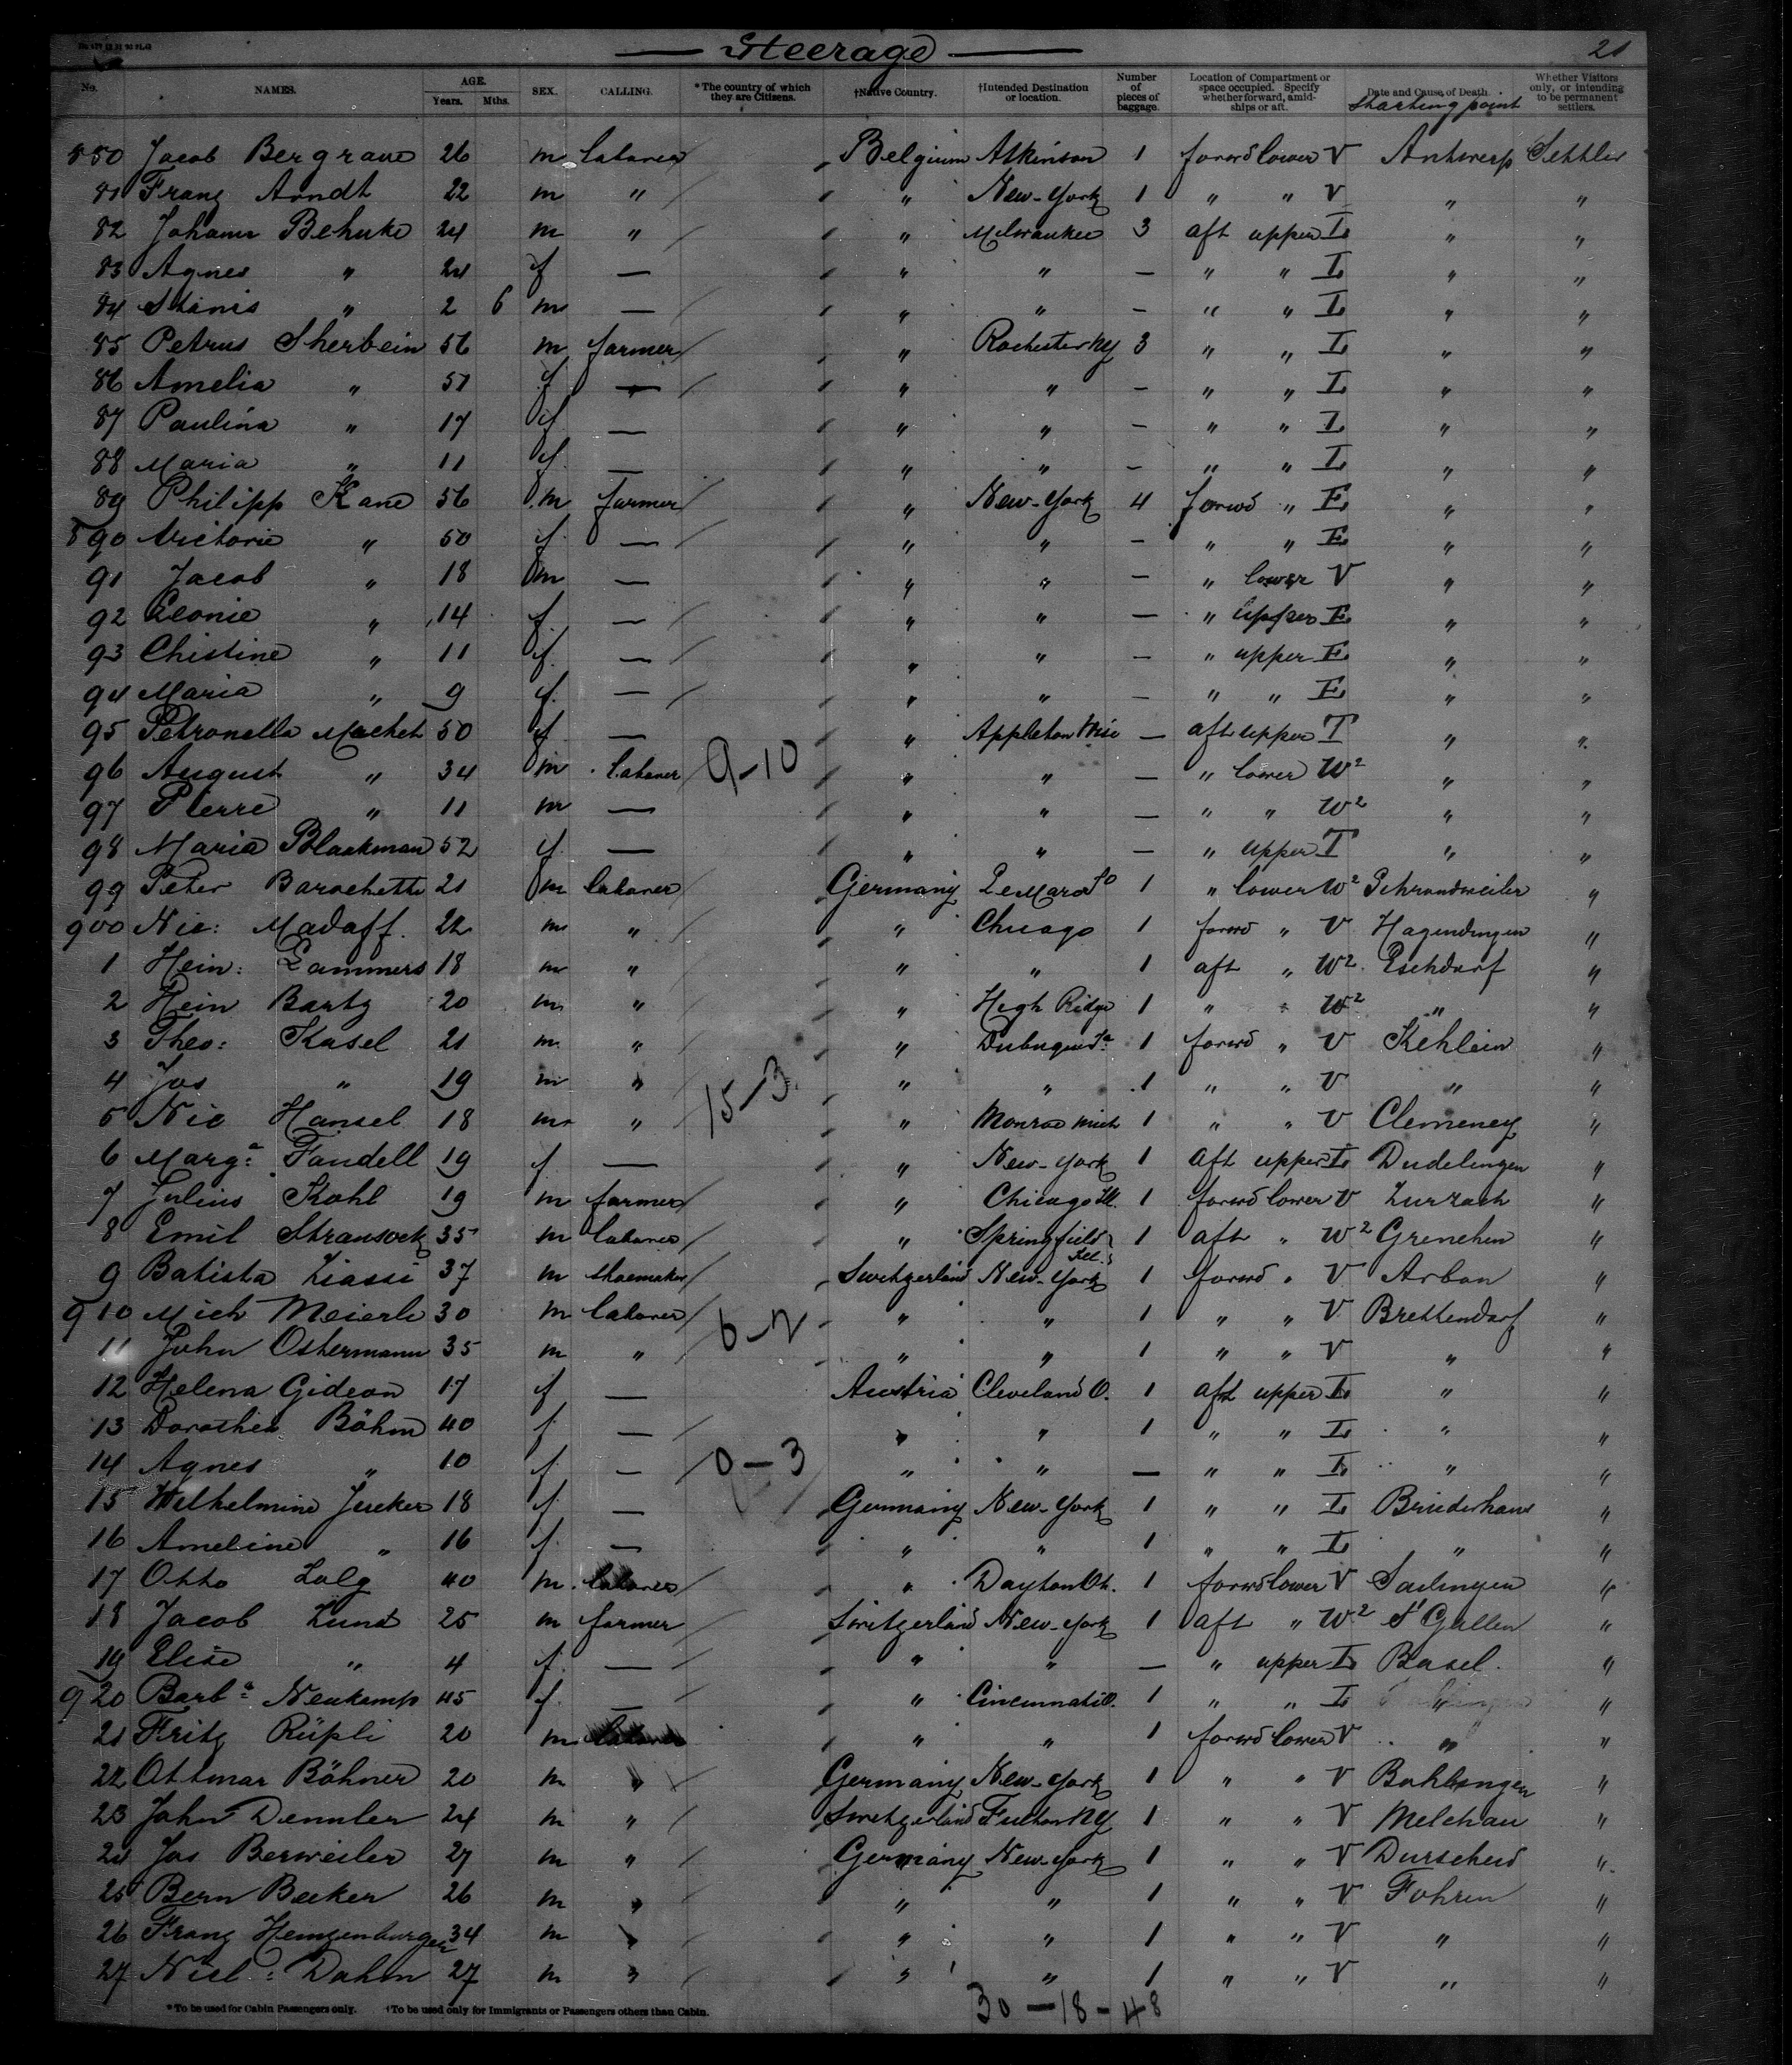 Steerage 21
No. NAMES. AGE. Years. Mths. SEX. CALLING. *The country of which they are Citizens. †Native Country. †Intended Destination or location. Number of pieces of baggage. Location of Compartment or space occupied. Specify whether forward, amidships or aft. Date and Cause of Death Starting point Whether Visitors only, or intending to be permanent settlers.
880 Jacob Bergrave 26 m laborer Belgium Atkinson 1 forwd lower V Antwerp Settler
81 Franz Arndt 22 m " " New-York 1 " " V " "
82 Johann Behnke 24 m " " Milwaukee 3 aft upper L " "
83 Agnes " 24 f — " " — " " L " "
84 Stanis " 2 6 m — " " — " " L " "
85 Petrus Sherbein 56 m farmer " Rochester NY 3 " " L " "
86 Amelia " 51 f — " " — " " L " "
87 Paulina " 17 f — " " — " " L " "
88 Maria " 11 f — " " — " " L " "
89 Philipp Kane 56 m farmer " New-York 4 forwd " E " "
890 Victorie " 50 f — " " — " " E " "
91 Jacob " 18 m — " " — " lower V " "
92 Leonie " 14 f — " " — " upper E " "
93 Chistine " 11 f — " " — " upper E " "
94 Maria " 9 f — " " — " " E " "
95 Petronella Machet 50 f — " Appleton Wisc — aft upper T " "
96 August " 34 m laborer 9-10 " " — " lower W2 " "
97 Pierre " 11 m — " " — " " W2 " "
98 Maria Blackman 52 f — " " — " upper T " "
99 Peter Barochette 21 m laborer Germany Le Mars 1 " lower W2 "
900 Nic: Madaff. 22 m " " Chicago 1 forwd " V Hagendingen "
1 Hein: Lammers 18 m " " " 1 aft " W2 Eschdorf "
2 Hein Bartz 20 m " " High Ridge 1 " " W2 " "
3 Theo: Kasel 21 m " " Dubuque Ia 1 forwd " V Kehlein "
4 Jos " 19 m " 15-3 " " 1 " " V " "
5 Nic Hansel 18 m " " Monroe Mich 1 " " V Clemeney "
6 Marga Fandell 19 f — " New-York 1 aft upper L Dudelingen "
7 Julius Kohl 19 m farmer " Chicago Ill. 1 forwd lower V Zurzach "
8 Emil 35 m laborer " Springfield Ill. 1 aft " W2 Grenchen "
9 Batista Ziassi 37 m shoemaker Switzerland New-York 1 forwd " V Arbon "
910 Mich Meierle 30 m laborer 6-2 " " 1 " " V Brettendorf "
11 John Ostermann 35 m " " " 1 " " V " "
12 Helena Gideon 17 f — Austria Cleveland O. 1 aft upper L " "
13 Dorothea Böhm 40 f — " " 1 " " L " "
14 Agnes " 10 f — 0-3 " " — " " L " "
15 Wilhelmine Jucker 18 f — Germany New-York 1 " " L "
16 Ameline " 16 f — " " 1 " " L " "
17 Otto 40 m laborer " Dayton Oh. 1 forwd lower V "
18 Jacob Zund 25 m farmer Switzerland New-York 1 aft " W2 St Gallen "
19 Elise " 4 f — " " — " upper L Basel. "
920 Barba Neukamp 45 f — " Cincinnati O. 1 " " L " "
21 Fritz Rüpli 20 m laborer " " 1 forwd lower V " "
22 Ottmar Böhner 20 m " Germany New-York 1 " " V Bohlingen "
23 John Dennler 24 m " Switzerland Fulton NY 1 " " V Melchau "
24 Jos Berweiler 27 m " Germany New-York 1 " " V Durscheid "
25 Bern Becker 26 m " " " 1 " " V Fohren "
26 Franz Hemgenburger 34 m " " " 1 " " V " "
27 Nicl: Dahm 27 m " " " 1 " " V " "
*To be used for Cabin Passengers only. †To be used only for Immigrants or Passengers others than Cabin.
30-18-48